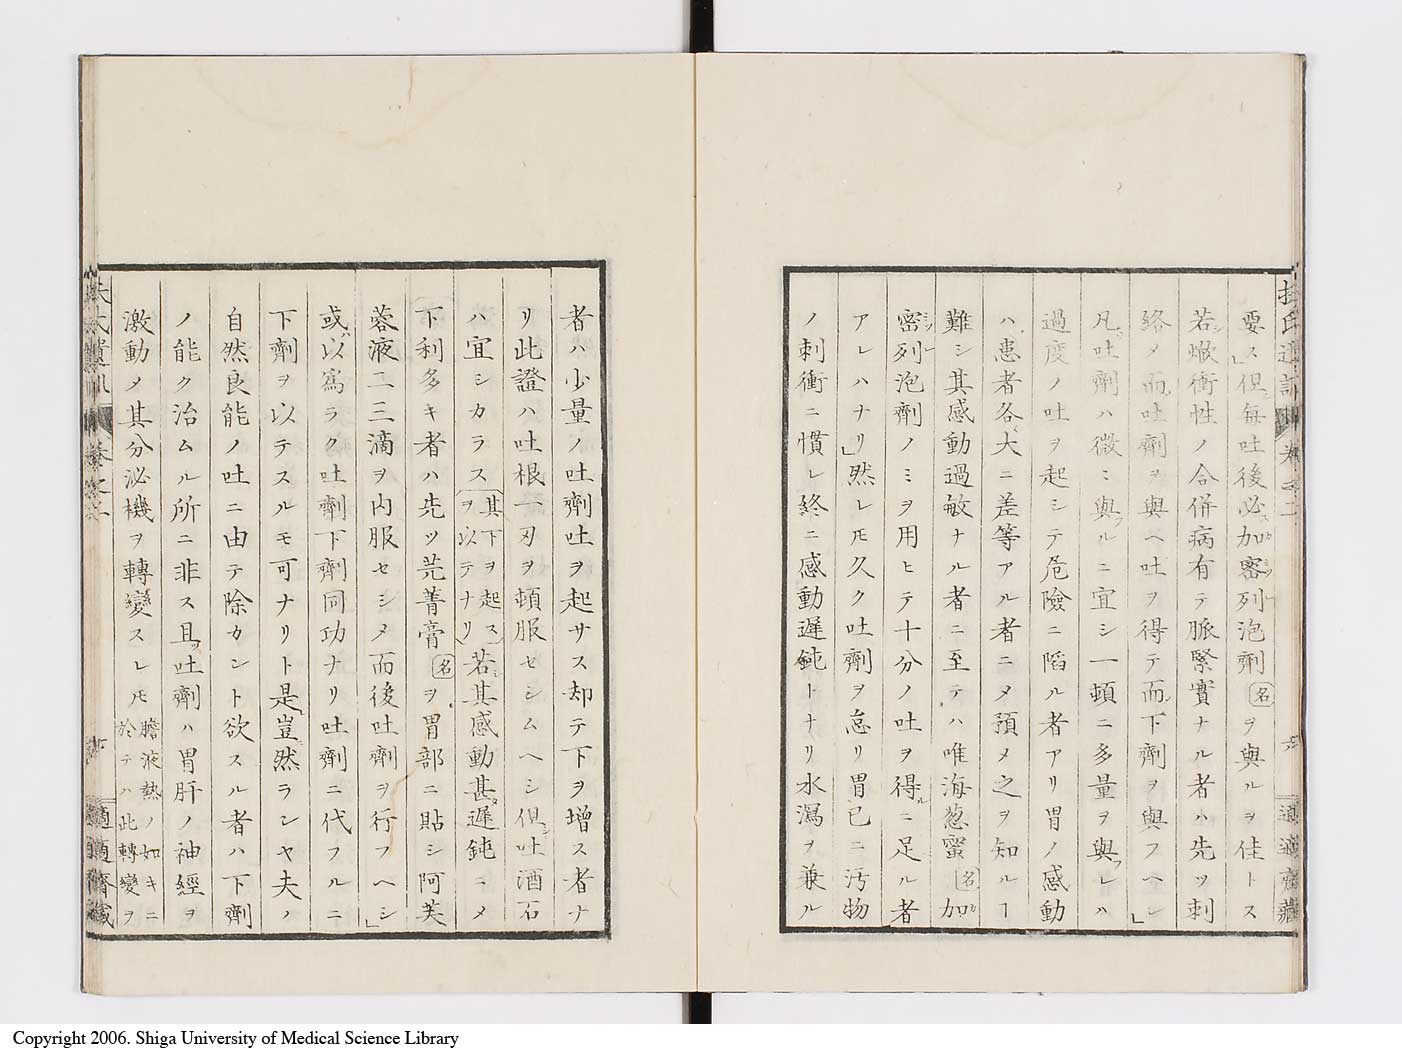 要ス」但毎吐後必加密列泡劑名ヲ與ルヲ佳トス
若焮衝性ノ合併病有テ脈緊實ナル者ハ先ツ刺
絡メ而吐劑ヲ與ヘ吐ヲ得テ而下劑ヲ與フヘシ」
凡吐劑ハ微ミ與ルニ宜シ一頓ニ多量ヲ與レハ
過度ノ吐ヲ起シテ危險ニ陷ル者アリ胃ノ感動
ハ患者各大ニ差等アル者ニメ預メ之ヲ知ルヿ
難シ其感動過敏ナル者ニ至テハ唯海葱蜜名加
密列泡劑ノミヲ用ヒテ十分ノ吐ヲ得ニ足ル者
アレハナリ」然レ𪜈久ク吐劑ヲ怠リ胃已ニ汚物
ノ刺衝ニ慣レ終ニ感動遲鈍トナリ水瀉ヲ兼ル
者ハ少量ノ吐劑吐ヲ起サス却テ下ヲ增ス者ナ
リ此證ハ吐根一刃ヲ頓服セシムヘシ但吐酒石
ハ宜シカラス其下ヲ起スヲ以テナリ若其感動甚遲鈍ニメ
下利多キ者ハ先ツ芫菁膏名ヲ胃部ニ貼シ阿芙
蓉液二三滴ヲ内服セシメ而後吐劑ヲ行フヘシ」
或以爲ラク吐劑下劑同功ナリ吐劑ニ代フルニ
下劑ヲ以テスルモ可ナリト是豈然ランヤ夫ノ
自然良能ノ吐ニ由テ除カント欲スル者ハ下劑
ノ能ク治ムル所ニ非ス且吐劑ハ胃肝ノ神經ヲ
激動メ其分泌機ヲ轉變スレ𪜈膽液熱ノ如キニ於テハ此轉變ヲ
扶氏遺訓 卷之二
適適齋藏
Copyright 2006. Shiga University of Medical Science Library